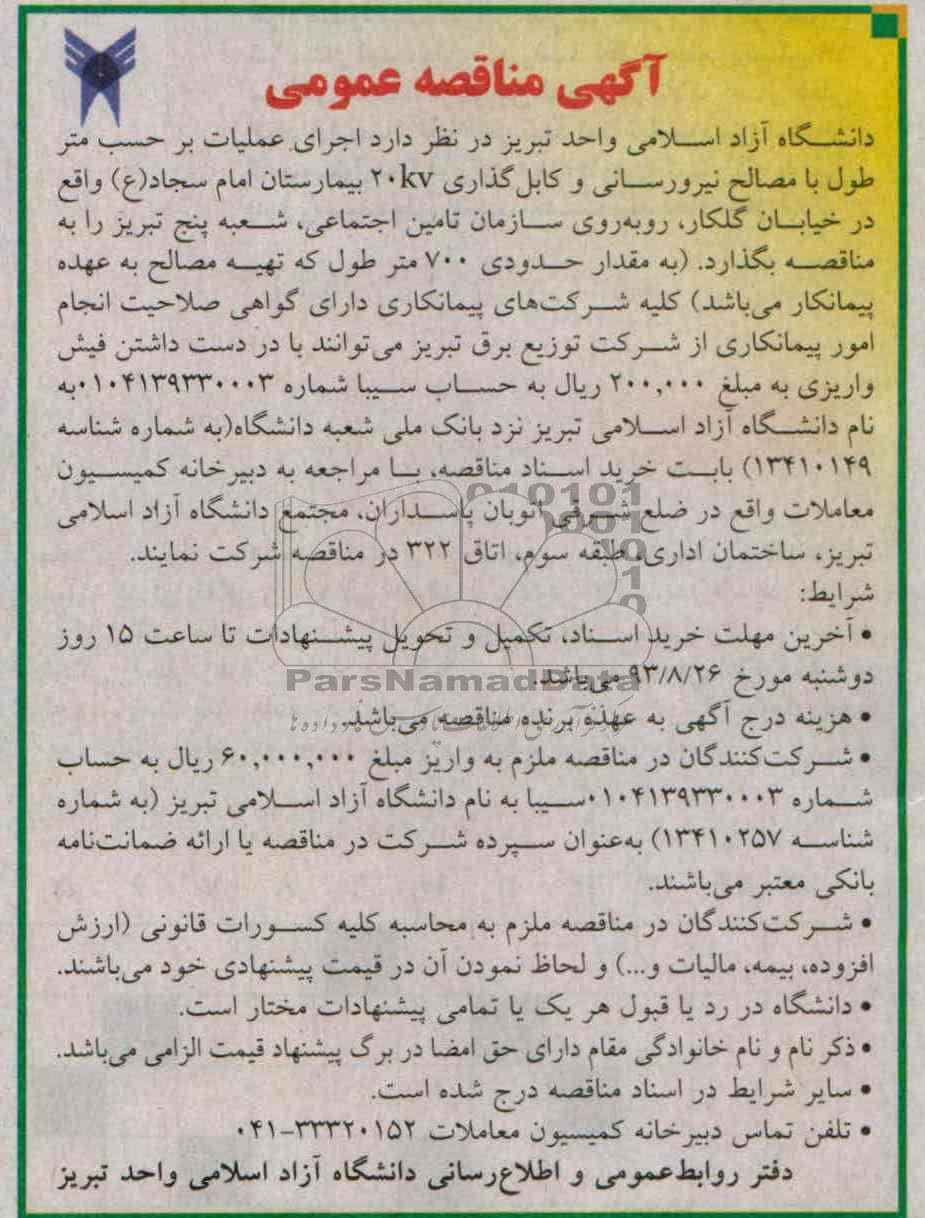 آگهی مناقصه عمومی
دانشگاه آزاد اسلامی واحد تبریز در نظر دارد اجرای عملیات بر حسب متر
طول با مصالح نیرورسانی و کابل‌گذاری ۲۰kv بیمارستان امام سجاد(ع) واقع
در خیابان گلکار، روبه‌روی سازمان تامین اجتماعی، شعبه پنج تبریز را به
مناقصه بگذارد. (به مقدار حدودی ۷۰۰ متر طول که تهیه مصالح به عهده
پیمانکار می‌باشد) کلیه شرکت‌های پیمانکاری دارای گواهی صلاحیت انجام
امور پیمانکاری از شرکت توزیع برق تبریز می‌توانند با در دست داشتن فیش
واریزی به مبلغ ۲۰۰,۰۰۰ ریال به حساب سیبا شماره ۰۱۰۴۱۳۹۳۳۰۰۰۳به
نام دانشگاه آزاد اسلامی تبریز نزد بانک ملی شعبه دانشگاه(به شماره شناسه
۱۳۴۱۰۱۴۹) بابت خرید اسناد مناقصه، با مراجعه به دبیرخانه کمیسیون
معاملات واقع در ضلع شرقی اتوبان پاسداران، مجتمع دانشگاه آزاد اسلامی
تبریز، ساختمان اداری، طبقه سوم، اتاق ۳۲۲ در مناقصه شرکت نمایند.
شرایط:
• آخرین مهلت خرید اسناد، تکمیل و تحویل پیشنهادات تا ساعت ۱۵ روز
دوشنبه مورخ ۹۳/۸/۲۶ می‌باشد.
ParsNamadData
• هزینه درج آگهی به عهده برنده مناقصه می‌باشد.
• شرکت‌کنندگان در مناقصه ملزم به واریز مبلغ ۶۰,۰۰۰,۰۰۰ ریال به حساب
شماره ۰۱۰۴۱۳۹۳۳۰۰۰۳سیبا به نام دانشگاه آزاد اسلامی تبریز (به شماره
شناسه ۱۳۴۱۰۲۵۷) به‌عنوان سپرده شرکت در مناقصه یا ارائه ضمانت‌نامه
بانکی معتبر می‌باشند.
• شرکت‌کنندگان در مناقصه ملزم به محاسبه کلیه کسورات قانونی (ارزش
افزوده، بیمه، مالیات و...) و لحاظ نمودن آن در قیمت پیشنهادی خود می‌باشند.
• دانشگاه در رد یا قبول هر یک یا تمامی پیشنهادات مختار است.
• ذکر نام و نام خانوادگی مقام دارای حق امضا در برگ پیشنهاد قیمت الزامی می‌باشد.
• سایر شرایط در اسناد مناقصه درج شده است.
• تلفن تماس دبیرخانه کمیسیون معاملات ۳۳۳۲۰۱۵۲-۰۴۱
دفتر روابط‌عمومی و اطلاع‌رسانی دانشگاه آزاد اسلامی واحد تبریز